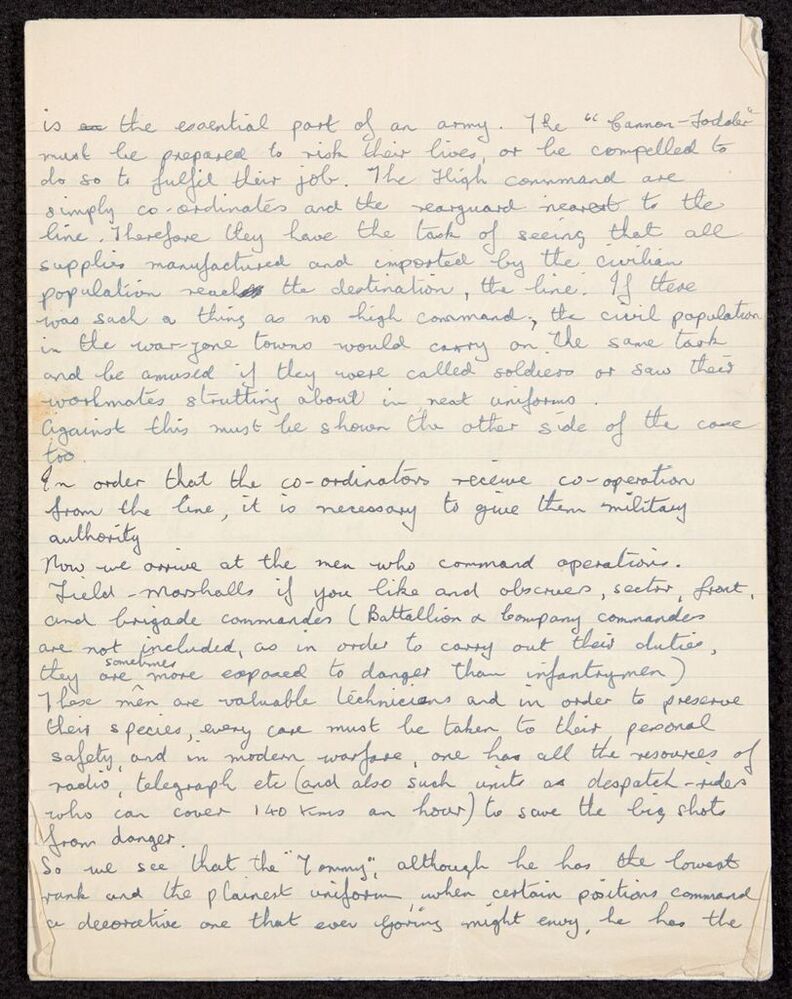 is the essential part of an army. The "Cannon-Fodder"
must be prepared to risk their lives, or be compelled to
do so to fulfil their job. The High command are
simply co-ordinators and the rearguard nearest to the
line. Therefore they have the task of seeing that all
supplies manufactured and imported by the civilian
population reach the destination, the line. If there
was such a thing as no high command, the civil population
in the war-zone towns would carry on the same task
and be amused if they were called soldiers or saw their
workmates strutting about in neat uniforms.
Against this must be shown the other side of the case
too.
In order that the co-ordinators receive co-operation
from the line, it is necessary to give them military
authority
Now we arrive at the men who command operations.
Field-Marshalls if you like and , sector, front,
and brigade commanders (Battallion & Company commanders
are not included, as in order to carry out their duties,
they are sometimes more exposed to danger than infantrymen)
These men are valuable technicians and in order to preserve
their species, every care must be taken to their personal
safety, and in modern warfare, one has all the resources of
radio, telegraph etc (and also such units as despatch-riders
who can cover 140 kms an hour) to save the big shots
from danger.
So we see that the "Tommy", although he has the lowest
rank and the plainest uniform, when certain positions command
a decorative one that even Goring might envy, he has the